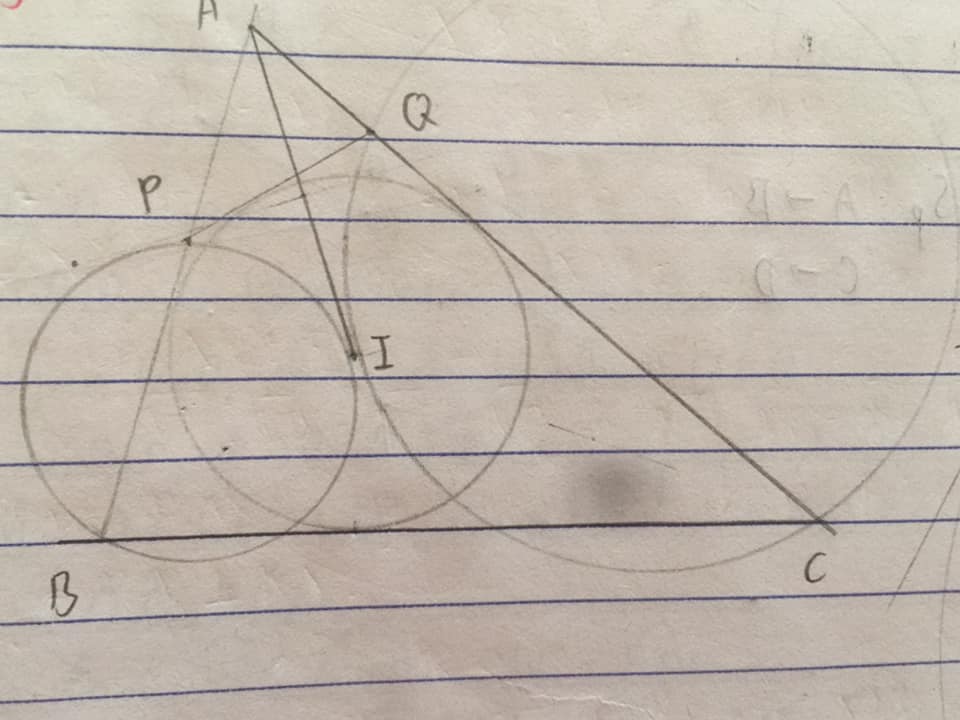 A
Q
P
I
B
C